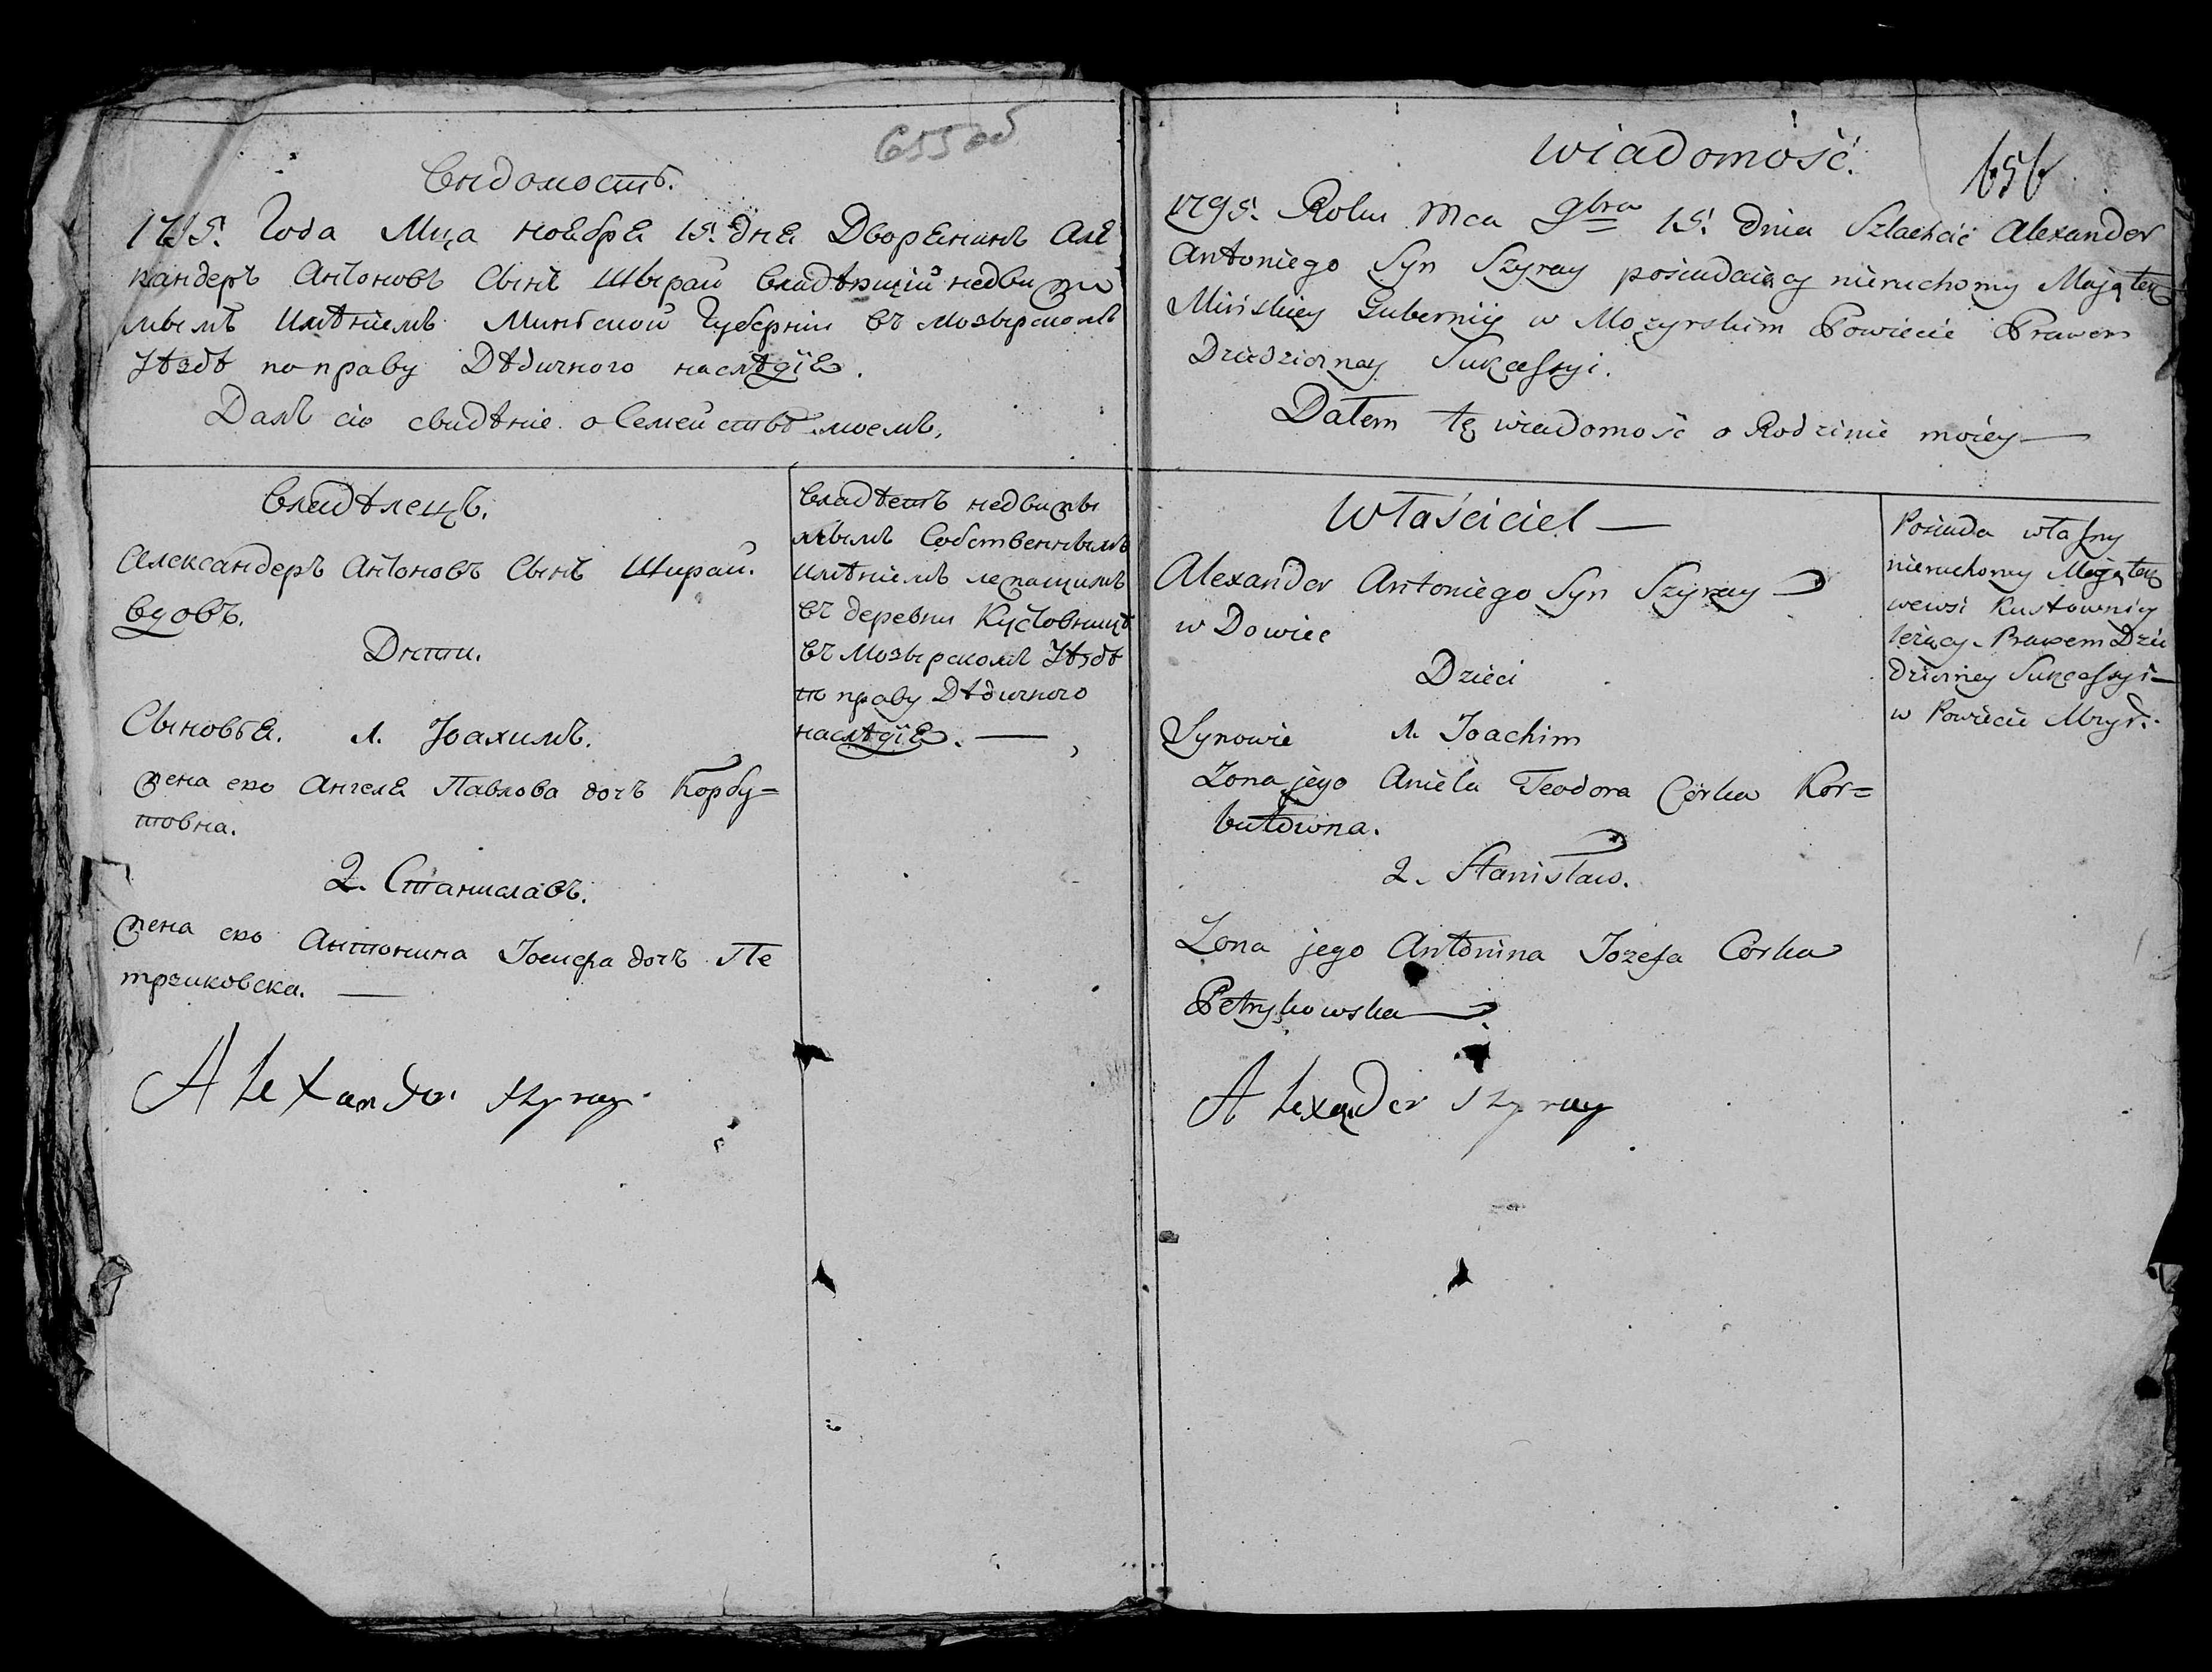 655 об
Видомость.
1795. Года Мца ноебрѧ 15. днѧ Дворѧнинъ Алѧ
ксандеръ Антоновъ Сынъ Шырай владѣющій недвижи
мымъ имѣніемъ Минской Губерніи въ Мозырскомъ
Уѣздѣ по праву Дѣдичного наслѣдіѧ.
Далъ сіо свидѣніе о Семействѣ моемъ.
Владѣлецъ.
Александеръ Антоновъ Сынъ Ширай.
вдовъ.
Дѣти.
Сыновьѧ. 1. Іоахимъ.
жена его Ангелѧ Павлова дочъ Корбу=
товна.
2. Станиславъ.
жена его Антонина Іосифа дочъ Пе
трыковска.
Alexander Szyray
Владѣетъ недвижы
мымъ Собственнымъ
имѣніемъ лежащимъ
въ деревни Кустовницѣ
въ Мозырскомъ Уѣздѣ
по праву Дѣдичного
наслѣдіѧ.
656
Wiadomość.
1795. Roku Mca 9bra 15. Dnia Szlachcić Alexander
Antoniego Syn Szyray posiadaiący nieruchomy Maiątek
Mińskiey Gubernij w Mozyrskim Powiecie Prawem
Dziedziczney Sukcessyi.
Dałem tę wiadomość o Rodzinie moiey
Właściciel
Alexander Antoniego Syn Szyray
w Dowiec
Dzieci
Synowie 1. Ioachim
Zona jego Aniela Teodora Córka Kor=
butówna.
2. Stanisław.
Zona jego Antonina Iozefa Córka
Petrykowska
Alexander Szyray
Posiada własny
nieruchomy Maiątek
wewsi Kustownicy
leżący Prawem Dzie
dziczney Sukcessyi
w Powiecie Mozyr: